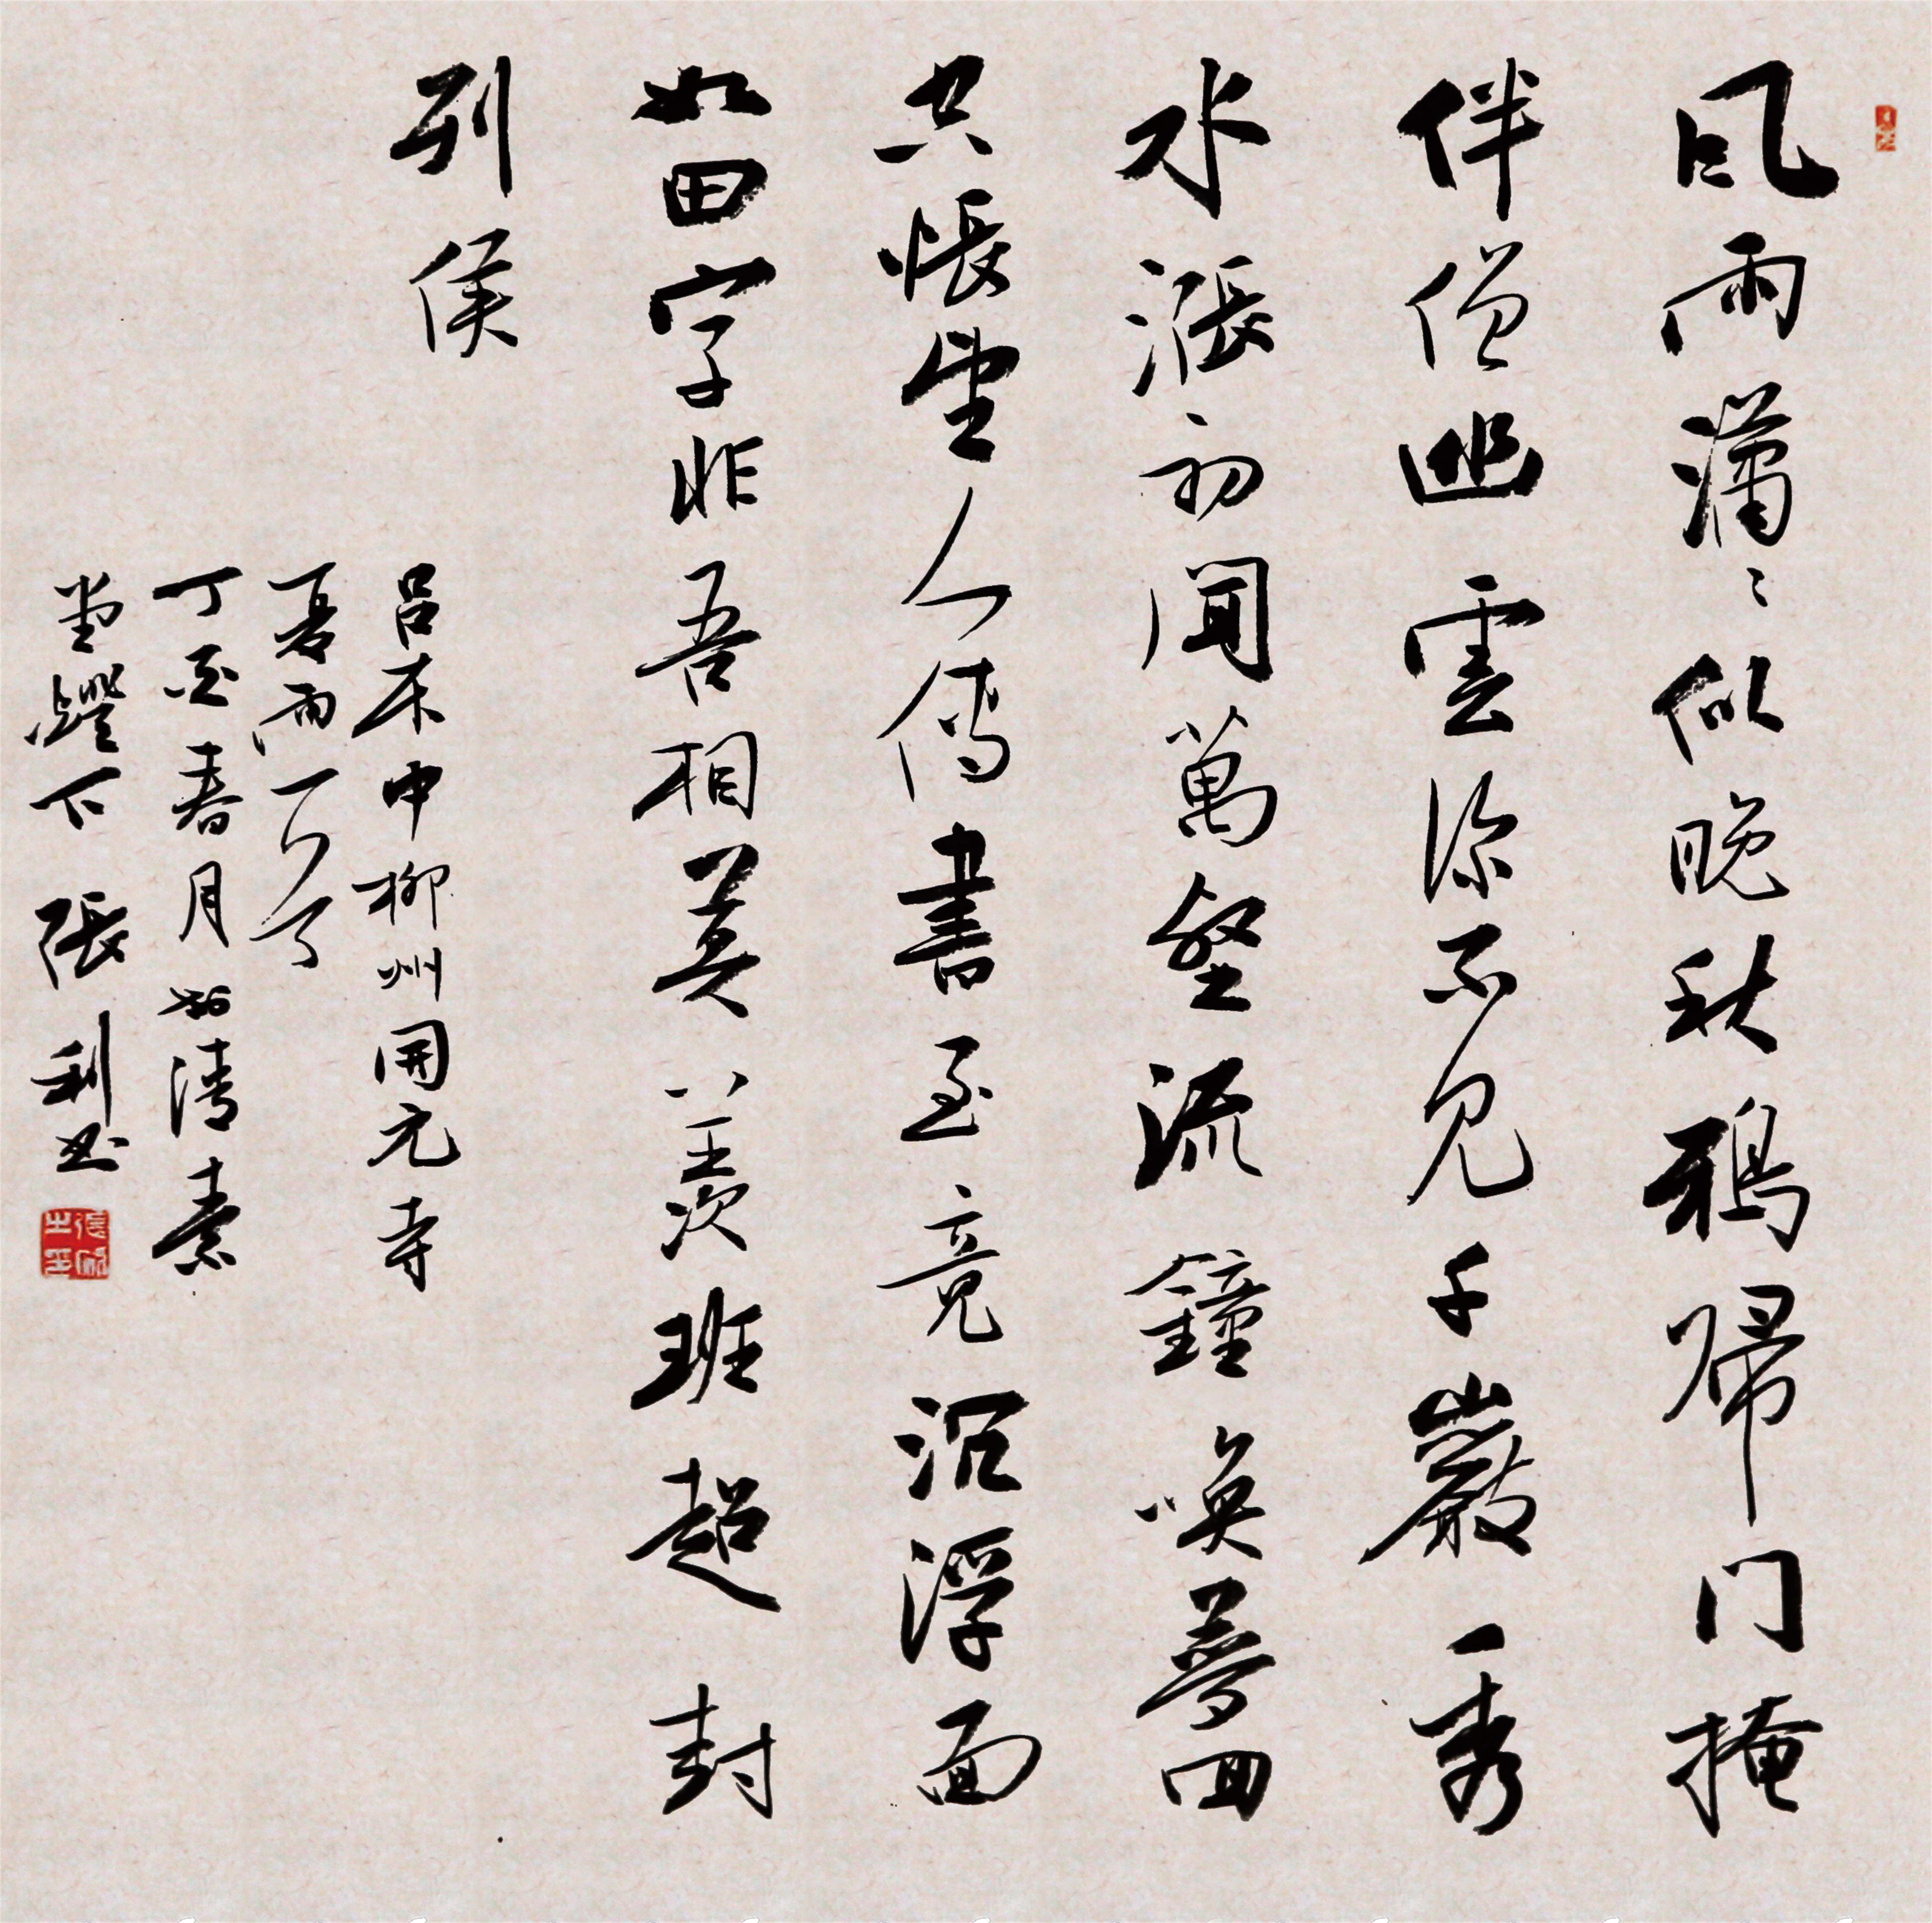 風雨瀟〻似晚秋鴉帰门掩
伴僧幽雲深不見千巖秀
水漲初聞萬壑流鐘喚夢回
空悵望人傳書至竟沉浮面
如田字非吾相莫羡班超封
列侯
呂本中柳州開元寺
夏雨一首
丁酉春月於清素
堂燈下張利書